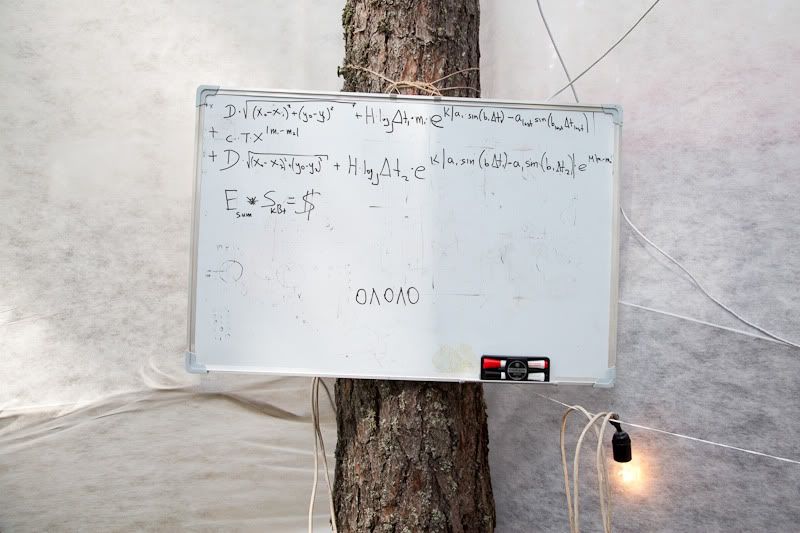 D·√(x₀-x₁)²+(y₀-y)² + H·log Δt₁·m₁·e^K|a₁ sin(b₁Δt₁)-a_last sin(b_last Δt_last)|
+ C·T·X^|m-m₀|
+ D √(x₀-x₁)²+(y₀-y)² + H·log Δt₂·e^K|a₁ sin(bΔt₁)-a₁ sin(b₁Δt₂)|·e^M|m-m
E_sum * S_кВт = $
0Λ0Λ0